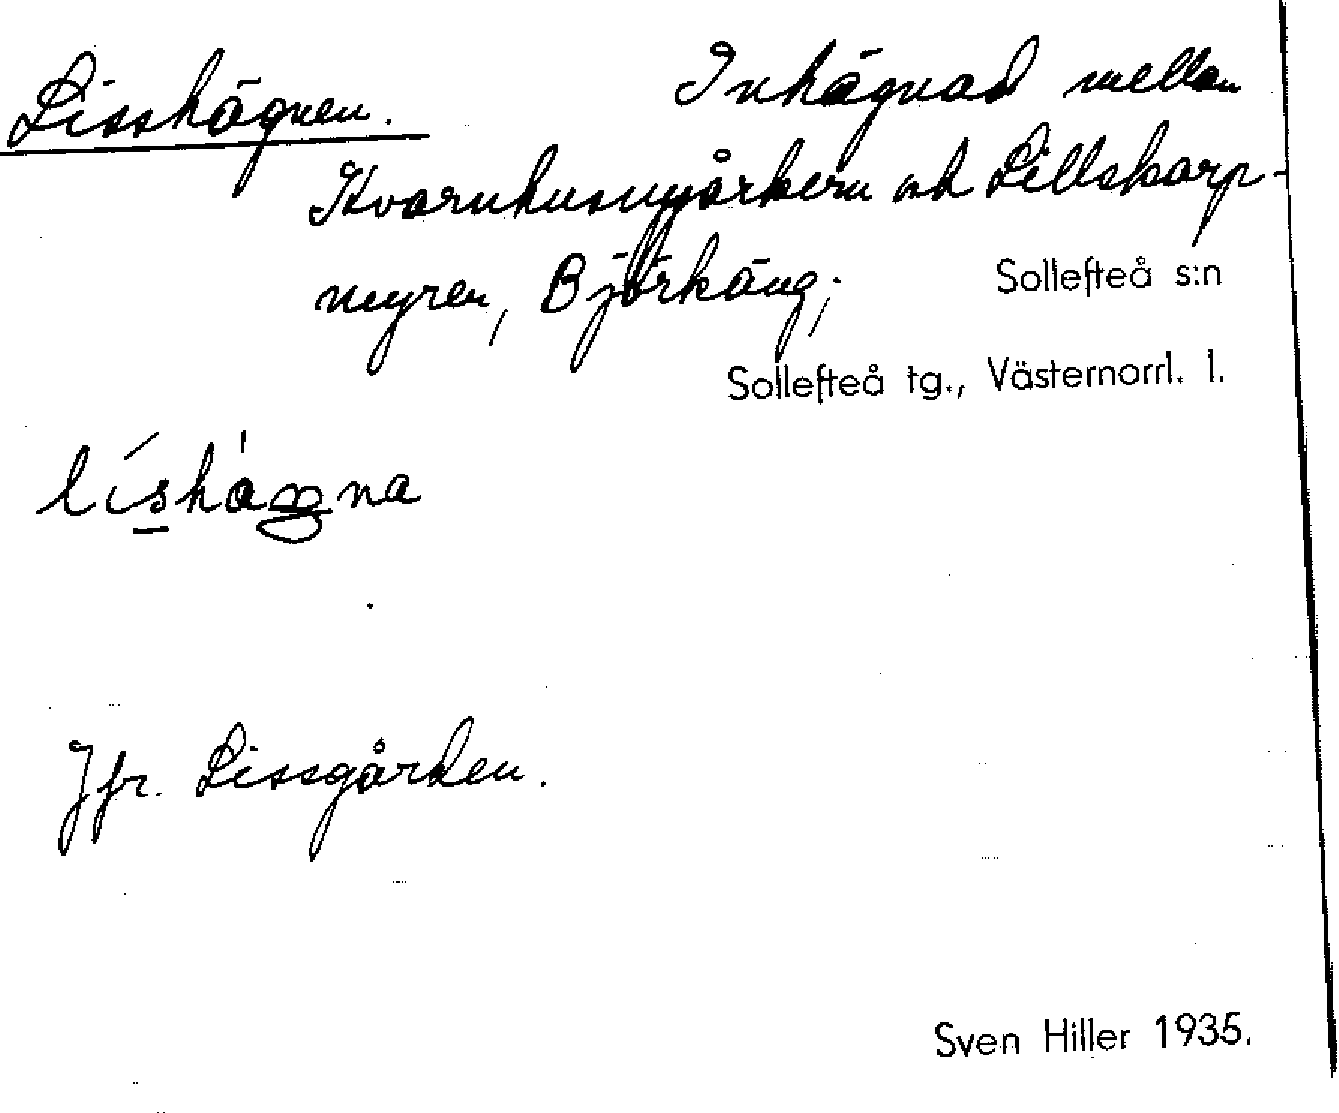 Lisshägnen. Inhägnad mellan
Kvarnhusmyrkern och Lillskarp-
myren, Björkäng, Sollefteå s:n
Sollefteå tg., Västernorrl. l.
Jfr. Lissgården.
Sven Hiller 1935.